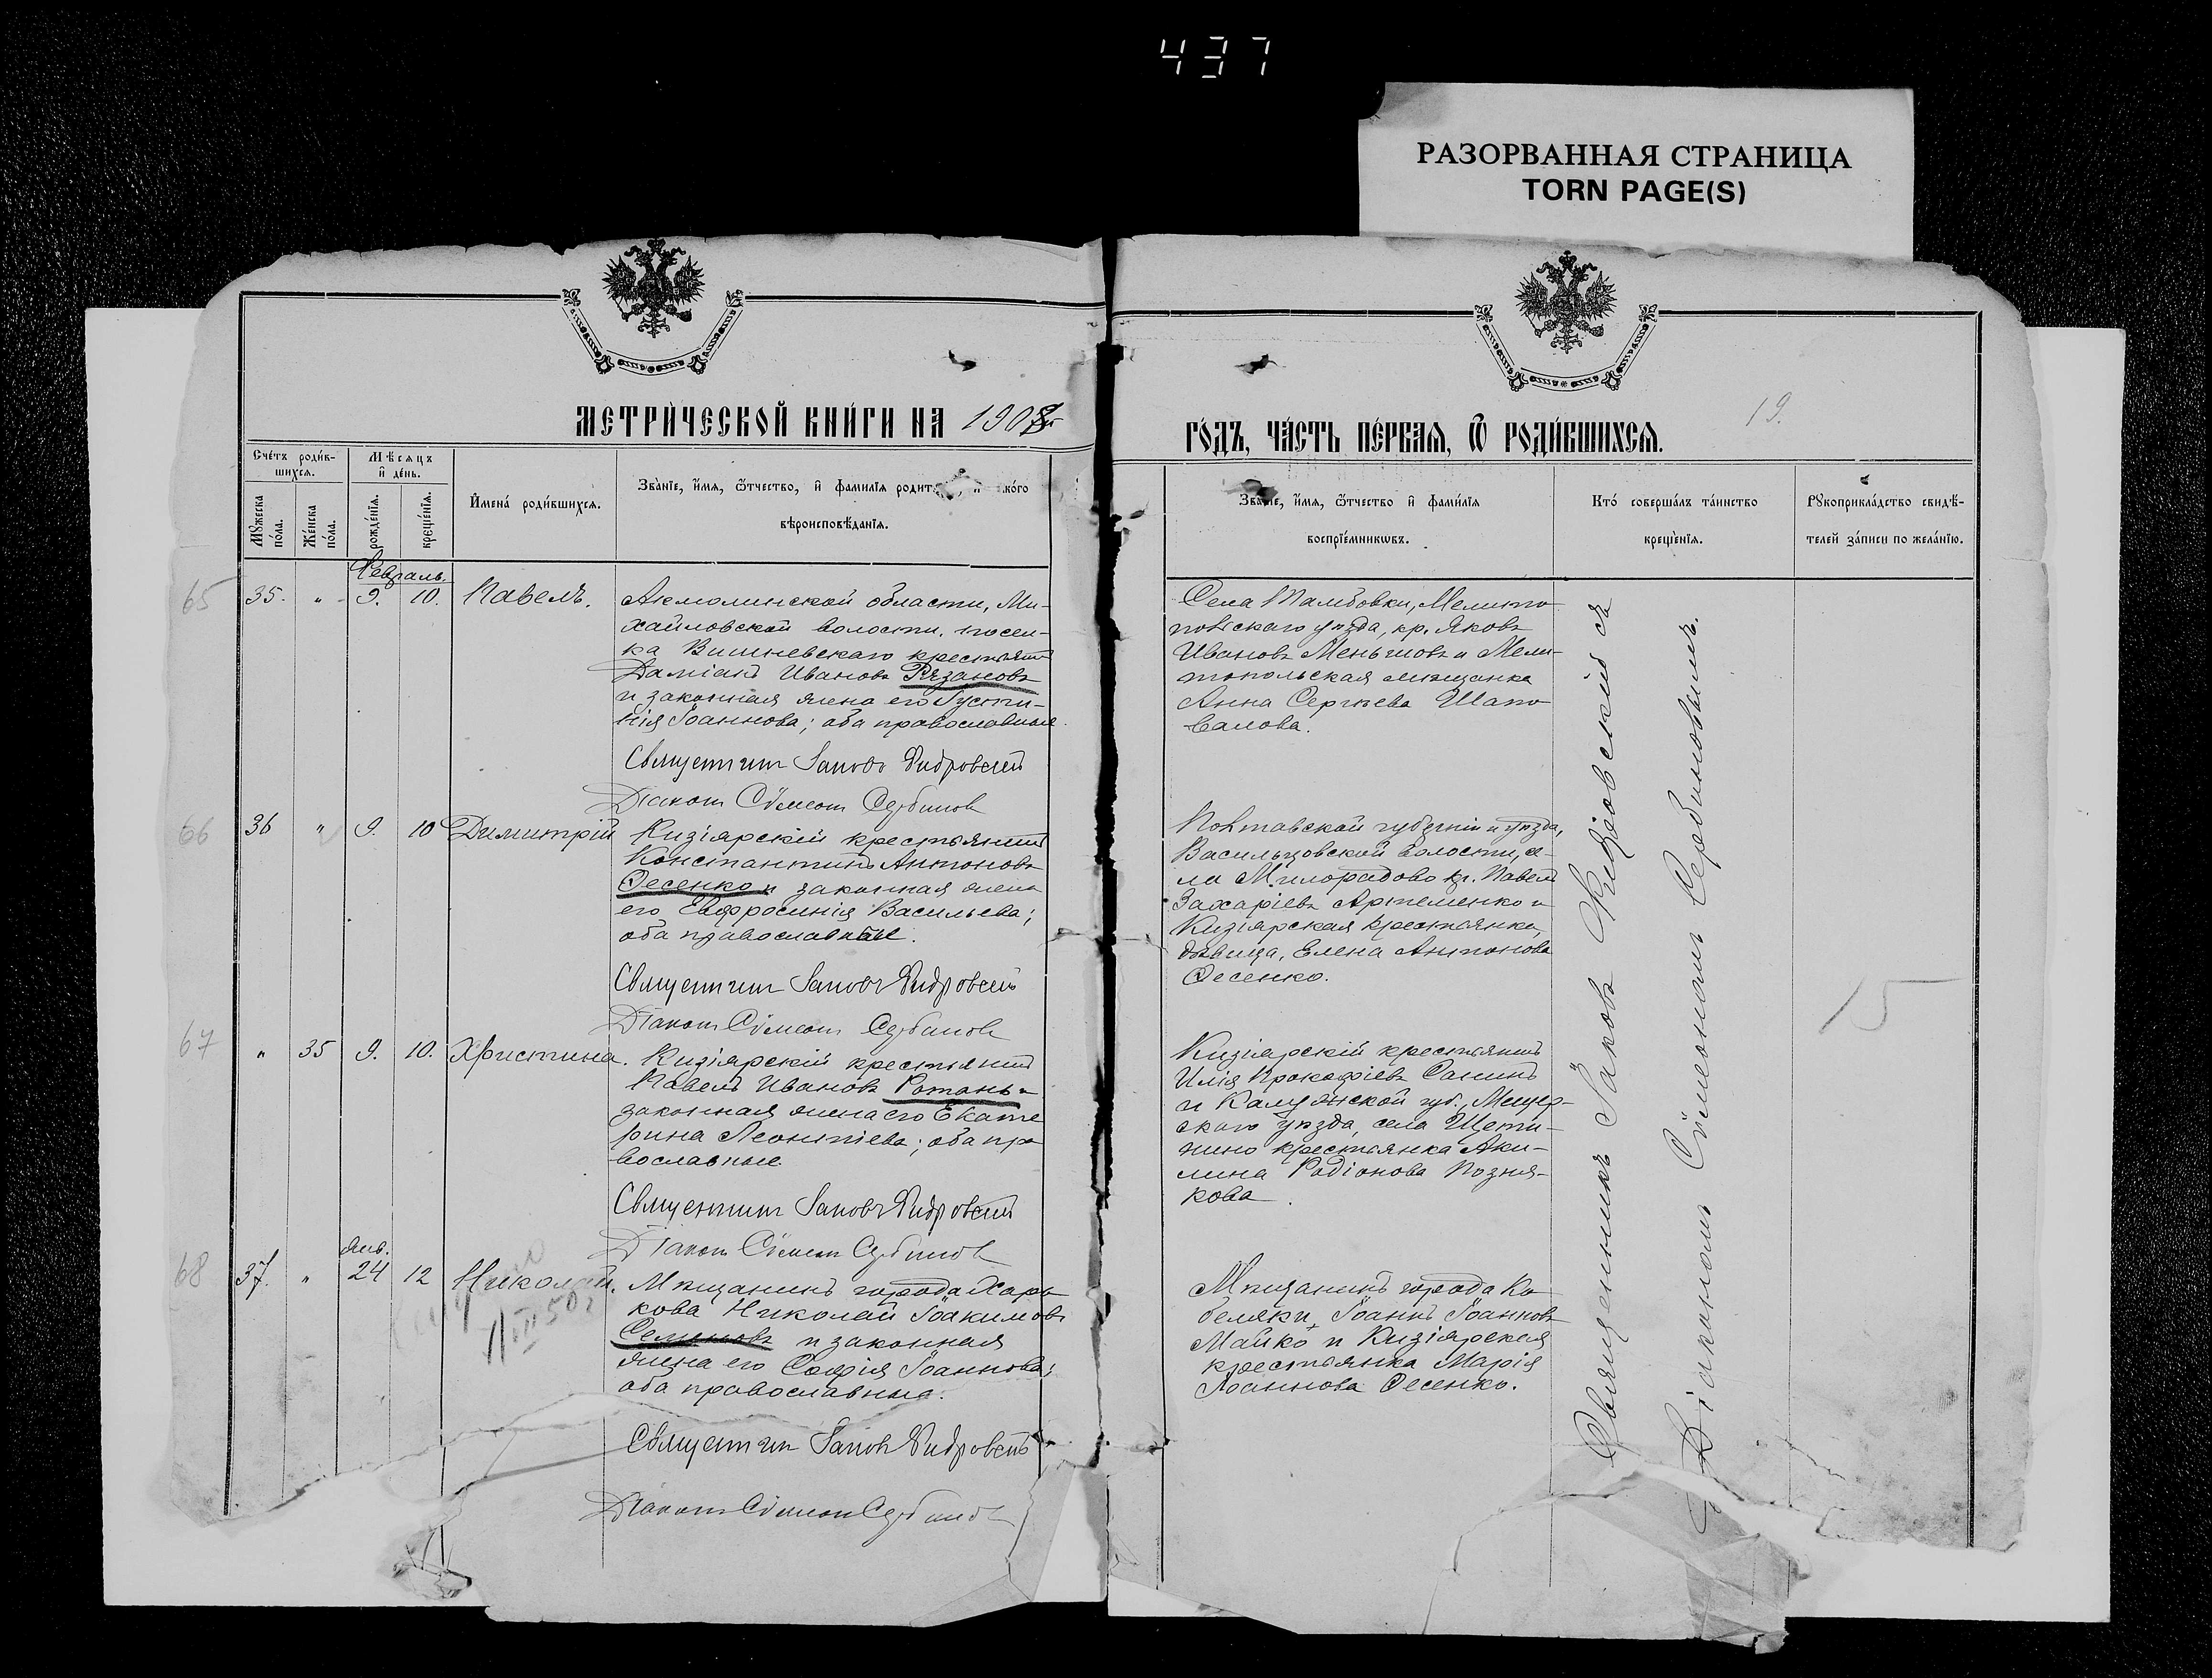 437
РАЗОРВАННАЯ СТРАНИЦА
TORN PAGE(S)
МЕТРИ́ЧЕСКОЙ КНИ́ГИ НА 190
ГО́ДЪ, ЧА́СТЬ ПЕ́РВАЯ, Ѡ РОДИ́ВШИХСЯ.
19.
Сче́тъ роди́в-
шихся.
Мѣ́сяцъ
и̂ де́нь.
Мꙋ́жеска
по́ла.
Же́нска
по́ла.
рожде́нїя.
креще́нїя.
И҆мена́ роди́вшихся.
Зва́нїе, и҆́мя, ѻ҆́тчество, и҆ фами́лїя родит и ко́го
вѣроисповѣ́данїя.
Зва́нїе, и҆́мя, ѻ҆́тчество и҆ фами́лїя
воспрїе́мникѡвъ.
Кто́ соверша́лъ та́инство
креще́нїя.
Рꙋкоприкла́дство свидѣ́-
телей за́писи по жела́нїю.
Февраль.
65 35. " 9. 10. Павелъ.
Акмолинской области, Ми-
хайловской волости, посел-
ка Вишневскаго крестьянинъ
Даміанъ Ивановъ Рязановъ
и законная жена его Іусти-
нія Іоаннова; оба православные.
Священникъ Іаковъ
Діаконъ Сѵмеонъ Сербиновъ
Села Тамбовки, Мелито
польскаго уѣзда, кр. Яковъ
Ивановъ Меньшовъ и Мели-
топольская мѣщанка
Анна Сергѣева Шапо
валова.
66 36 " 9. 10 Димитрій
Кизіярскій крестьянинъ
Константинъ Антоновъ
Фесенко и законная жена
его Евфросинія Васильева;
оба православные.
Священникъ Іаковъ
Діаконъ Сѵмеонъ Сербиновъ
Полтавской губерніи и уѣзда,
Васильцовской волости, се-
ла Милорадово кр. Павелъ
Захаріевъ Артеменко и
Кизіярская крестьянка,
дѣвица, Елена Антонова
Фесенко.
67 " 35 9. 10. Христина.
Кизіярскій крестьянинъ
Павелъ Ивановъ Ротань и
законная жена его Екате
рина Леонтіева; оба пра
вославные.
Священникъ Іаковъ
Діаконъ Сѵмеонъ Сербиновъ
Кизіярскій крестьянинъ
Илія Прокофіевъ Санинъ
и Калужской губ., Мещов-
скаго уѣзда, села Щети-
нино крестьянка Аки-
лина Родіонова Позня-
кова.
Янв.
68 37. " 24 12 Николай.
Мѣщанинъ города Харь
кова Николай Іоакимовъ
Семеновъ и законная
жена его Софія Іоаннова;
оба православные.
Священникъ Іаковъ
Діаконъ Сѵмеонъ Сербиновъ
Мѣщанинъ города Ко
беляки, Іоаннъ Іоанновъ
Майко и Кизіярская
крестьянка Марія
Іоаннова Фесенко.
Священникъ Іаковъ съ
Діакономъ Сѵмеономъ Сербиновымъ.
15